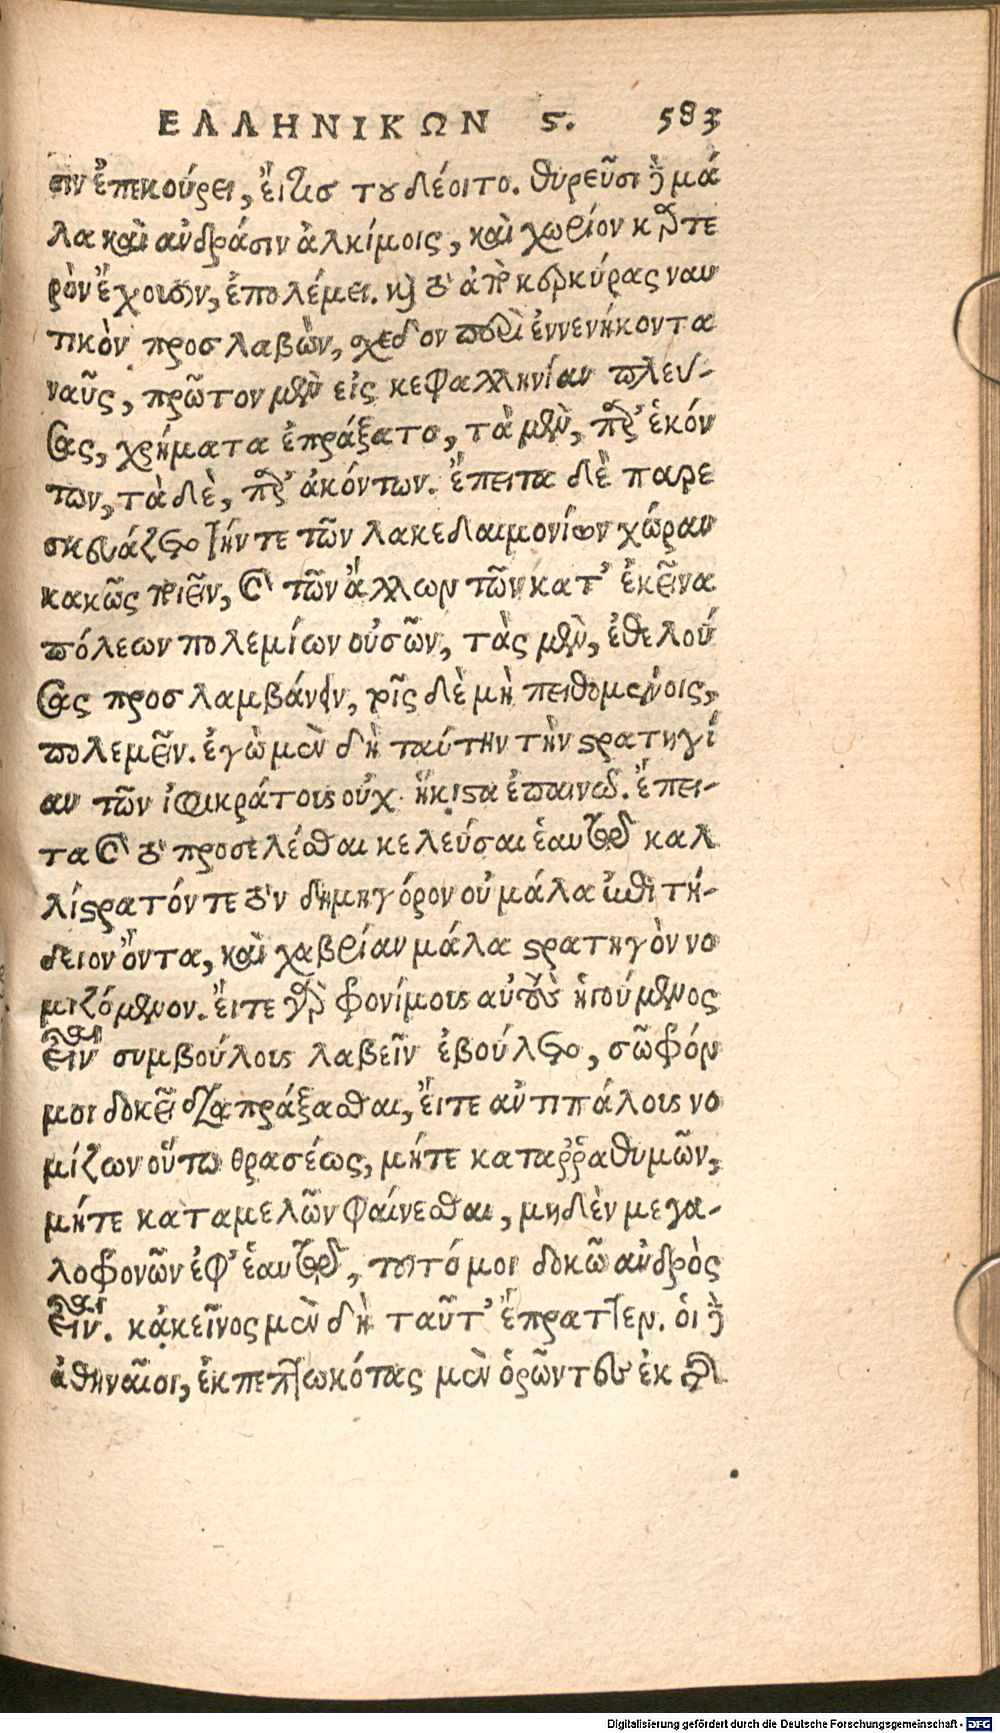 ΕΛΛΗΝΙΚΩΝ ϛ. 583
σιν ἐπικούρει, εἴ τισ του δέοιτο. θυρεῦσι δὲ μά
λα καὶ ἀνδράσιν ἀλκίμοις, καὶ χωρίον καρτε
ρὸν ἔχουσιν, ἐπολέμει. καὶ τὸ ἀπὸ κορκύρας ναυ
τικὸν προσλαβὼν, σχεδον περὶ ἐννενήκοντα
ναῦς, πρῶτον μὲν εἰς κεφαλληνίαν πλεύ-
σας, χρήματα ἐπράξατο, τὰ μὲν, παρ' ἑκόν
των, τὰ δὲ, παρ' ἀκόντων. ἔπειτα δὲ παρε
σκευάζετο τήν τε τῶν λακεδαιμονίων χώραν
κακῶς ποιεῖν, καὶ τῶν ἄλλων τῶν κατ' ἐκεῖνα
πόλεων πολεμίων οὐσῶν, τὰς μὲν, ἐθελού
σας προσλαμβάνειν, τοῖς δὲ μὴ πειθομένοις,
πολεμεῖν. ἐγὼ μὲν δὴ ταύτην τὴν στρατηγί
αν τῶν ἰφικράτους οὐχ ἥκιστα ἐπαινῶ. ἔπει-
τα καὶ τὸ προσελέσθαι κελεῦσαι ἑαυτῷ καλ
λίστρατόν τε τὸν δημηγόρον οὐ μάλα ἐπιτή-
δειον ὄντα, καὶ χαβρίαν μάλα στρατηγὸν νο
μιζόμενον. εἴτε γὰρ φρονίμους αὐτοὺς ἡγούμενος
εἶναι συμβούλους λαβεῖν ἐβούλετο, σῶφρόν
μοι δοκεῖ διαπράξασθαι, εἴτε ἀντιπάλους νο
μίζων οὕτω θρασέως, μήτε καταῤῥαθυμῶν,
μήτε καταμελῶν φαίνεσθαι, μηδὲν μεγα-
λοφρονῶν ἐφ' ἑαυτῷ, τοῦτό μοι δοκῶ ἀνδρὸς
εἶναι. κἀκεῖνος μὲν δὴ ταῦτ' ἔπραττεν. οἱ δὲ
ἀθηναῖοι, ἐκπεπτωκότας μὲν ὁρῶντες ἐκ
Digitalisierung gefördert durch die Deutsche Forschungsgemeinschaft - DFG